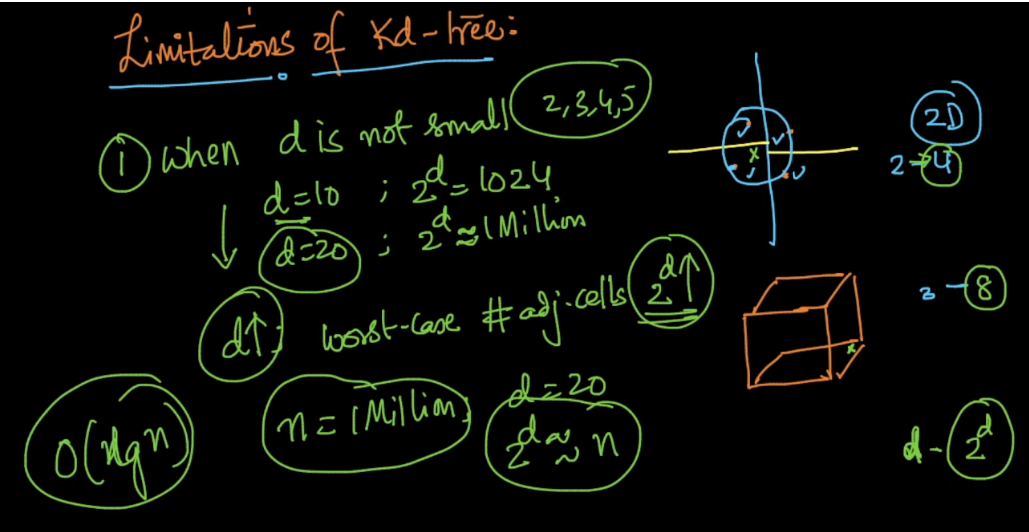 Limitations of Kd-tree:
① When d is not small (2,3,4,5)
d=10 ; 2^d = 1024
d=20 ; 2^d ≈ 1 Million
d↑; worst-case # adj-cells 2^d↑
n = 1 Million; d=20
2^d ≈ n
2D
2 → 4
3 - 8
d - 2^d